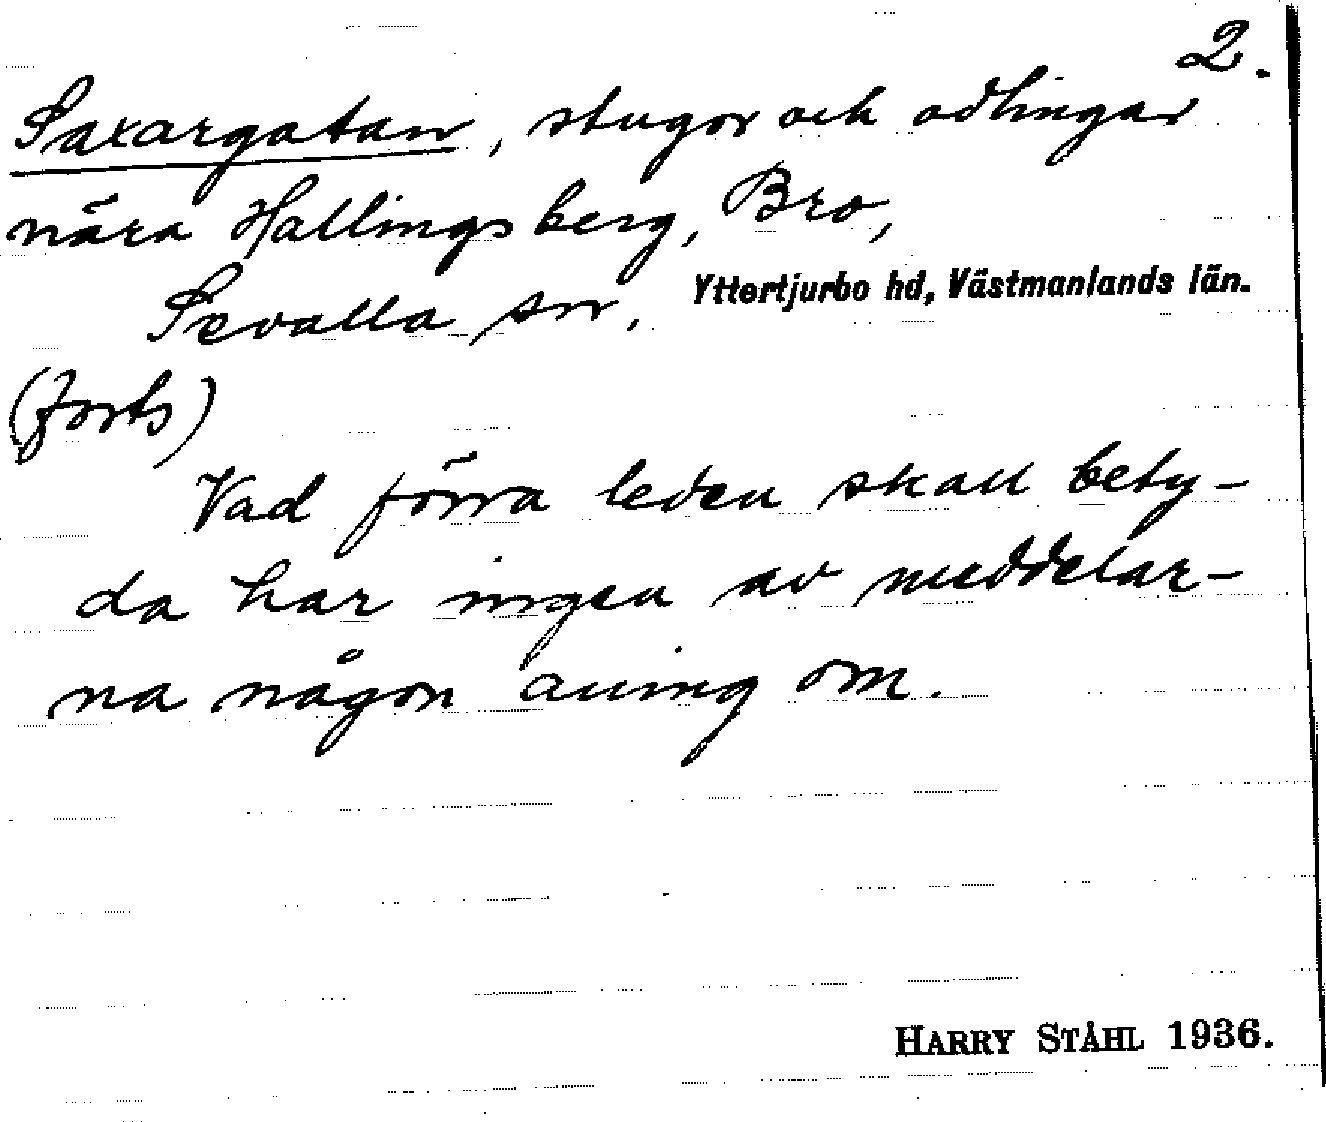 2.
Saxargatan, stugor och odlingar
nära Hallingsberg, Bro,
Sevalla sn, Yttertjurbo hd, Västmanlands län.
(forts)
Vad förra leden skall bety-
da har ingen av meddelar-
na någon aning om.
HARRY STÅHL 1936.